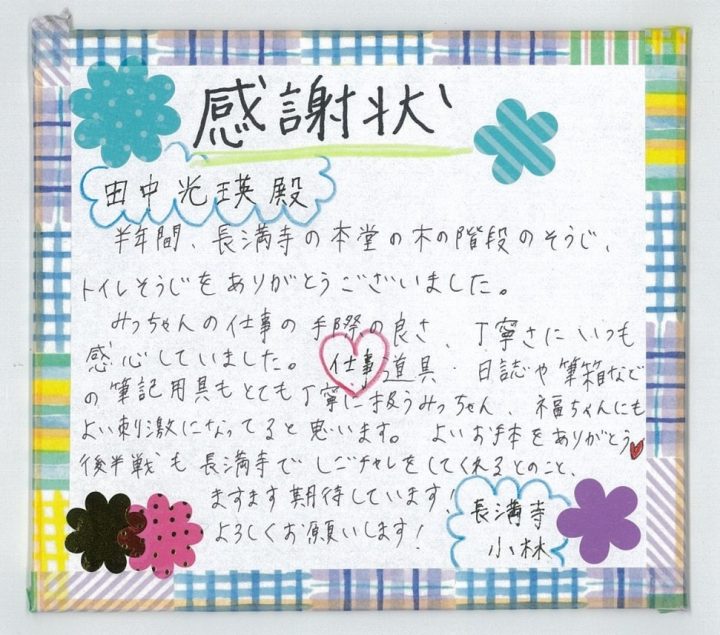 感謝状
田中光瑛殿
半年間、長満寺の本堂の木の階段のそうじ、
トイレそうじをありがとうございました。
みっちゃんの仕事の手際の良さ、丁寧さにいつも
感心していました。仕事道具・日誌や筆箱など
の筆記用具もとても丁寧に扱うみっちゃん、福ちゃんにも
よい刺激になってると思います。よいお手本をありがとう
後半戦も長満寺でしごチャレをしてくれるとのこと、
ますます期待しています!
よろしくお願いします!
長満寺
小林